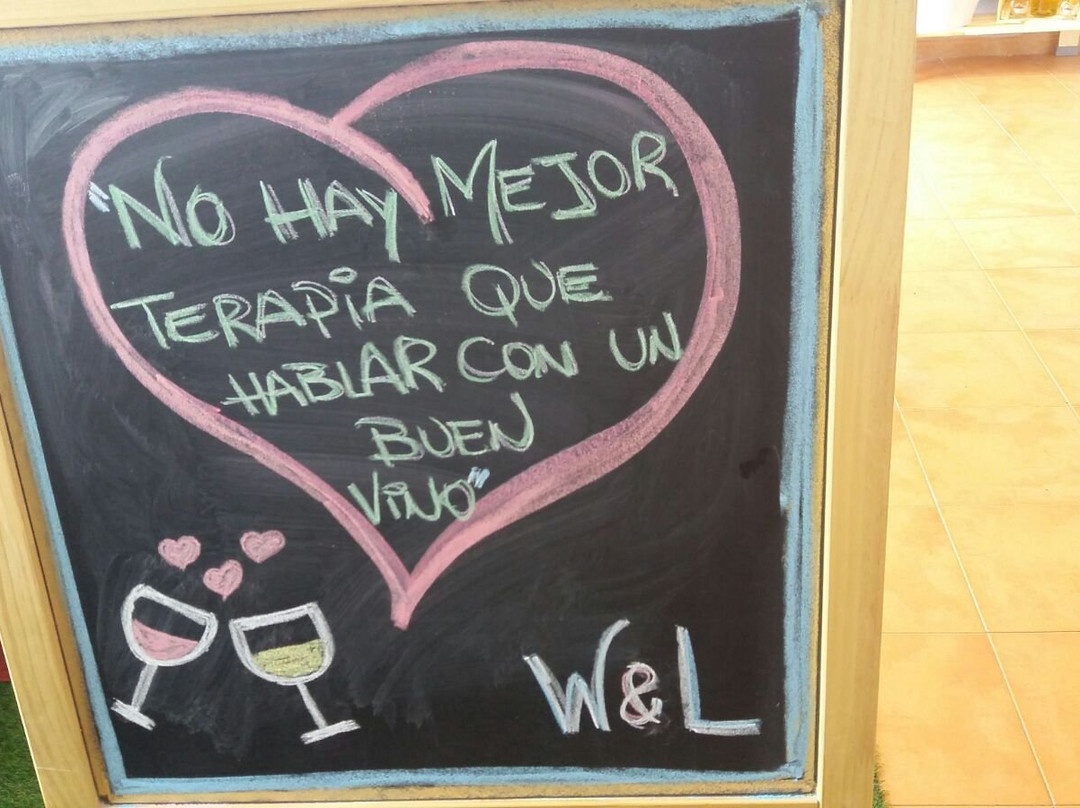 "NO HAY MEJOR
TERAPiA QUE
HABLAR CON UN
BUEN
ViNO"
W&L